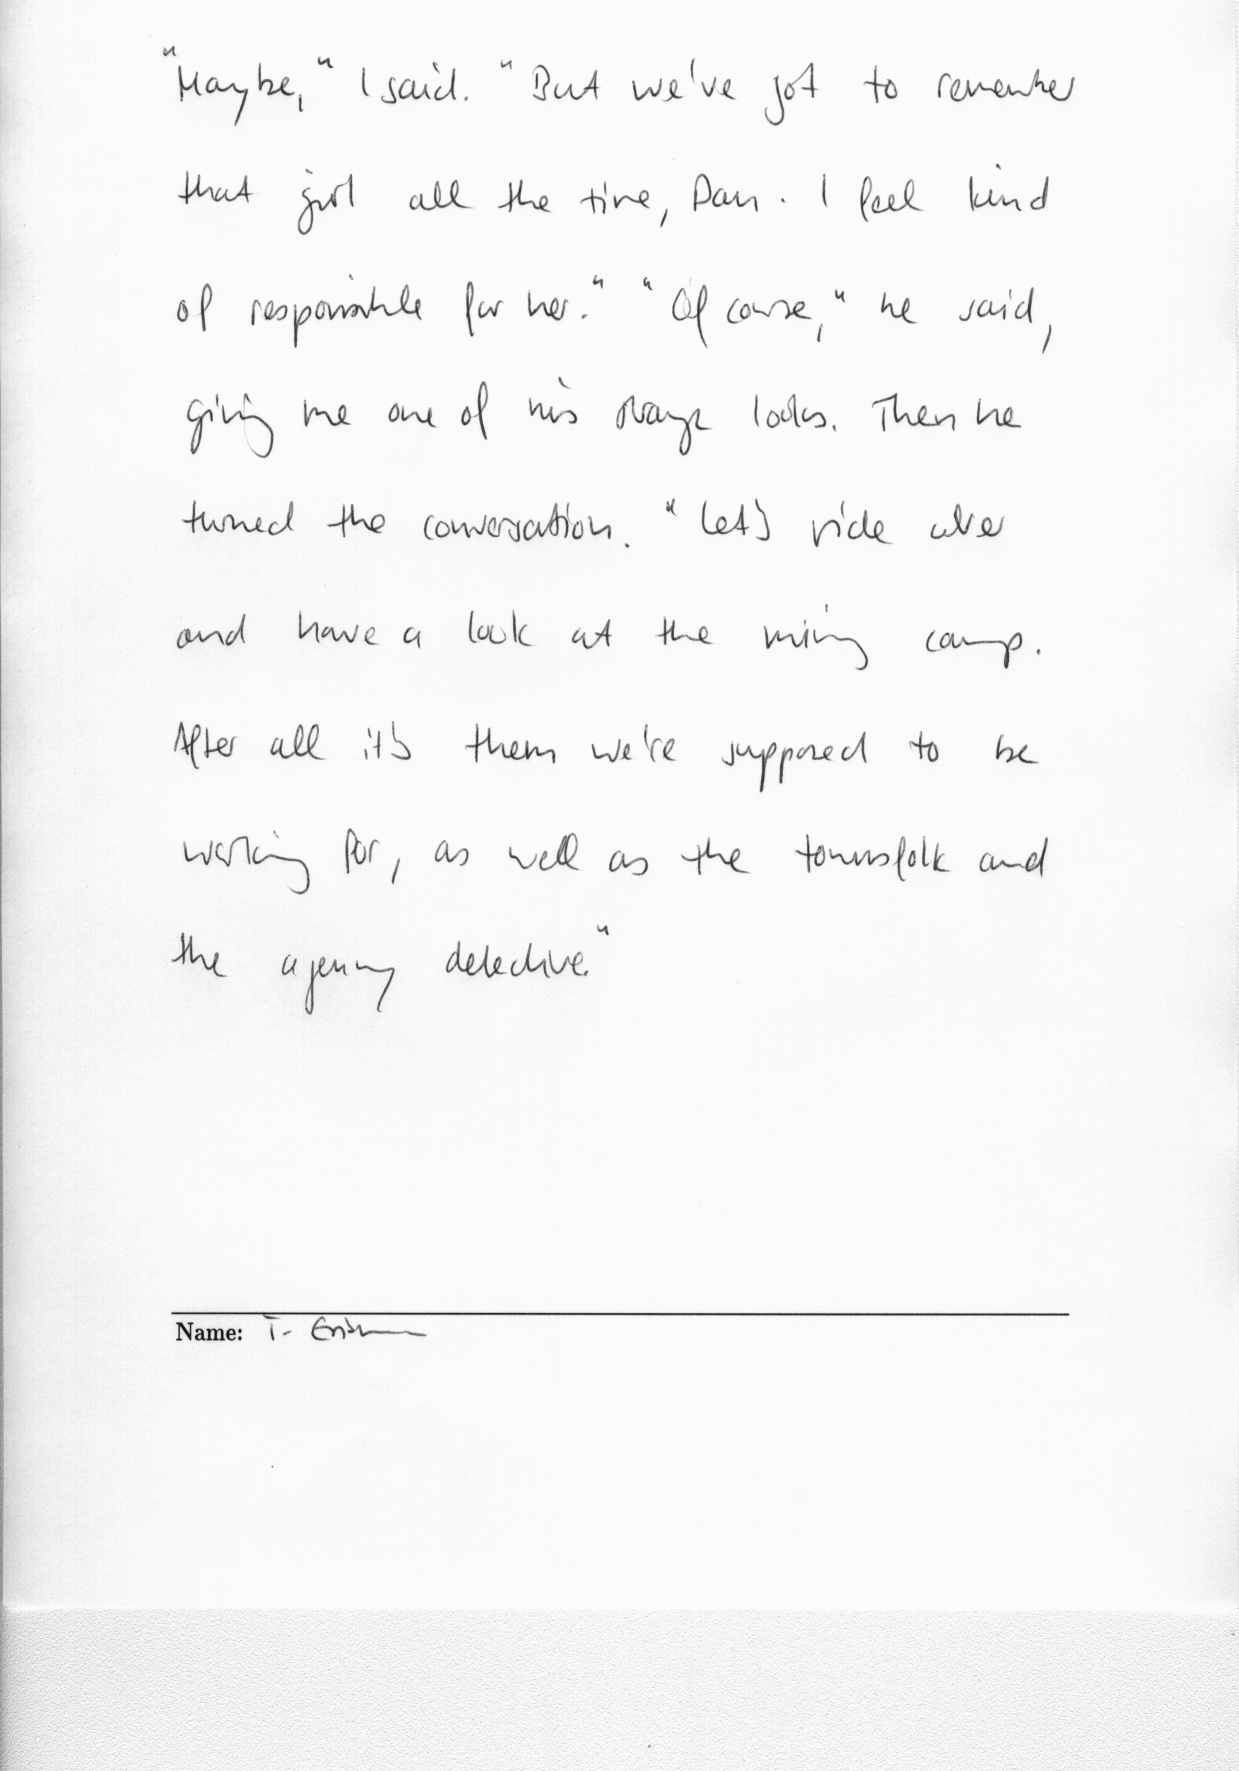 "Maybe," I said. "But we've got to remember
that girl all the time, Dan. I feel kind
of responsible for her." "Of course," he said,
giving me one of his strange looks. Then he
turned the conversation. "Let's ride over
and have a look at the mining camp.
After all it's them we're supposed to be
working for, as well as the townsfolk and
the agency detective."
Name: T.